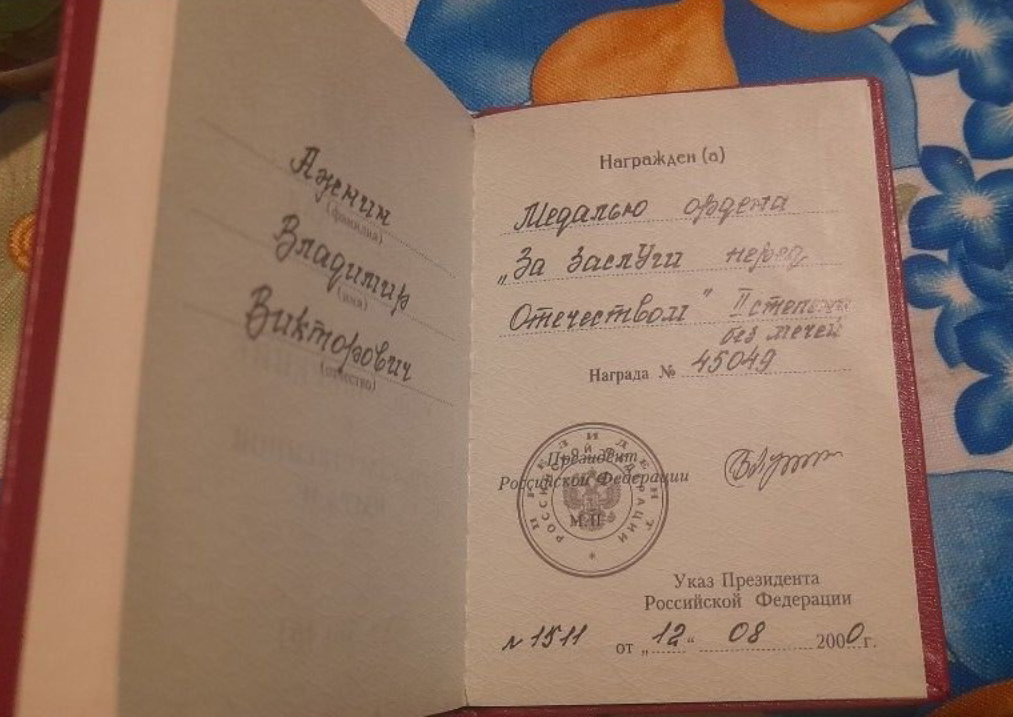 Аженин
(фамилия)
Владимир
(имя)
Викторович
(отчество)
Награжден (а)
Медалью ордена
„За заслуги перед
Отечеством" II степени
без мечей
Награда № 45049
Президент
Российской Федерации
М.П.
ПРЕЗИДЕНТ
РОССИЙСКОЙ ФЕДЕРАЦИИ
Указ Президента
Российской Федерации
№ 1511 от „12" 08 2000г.